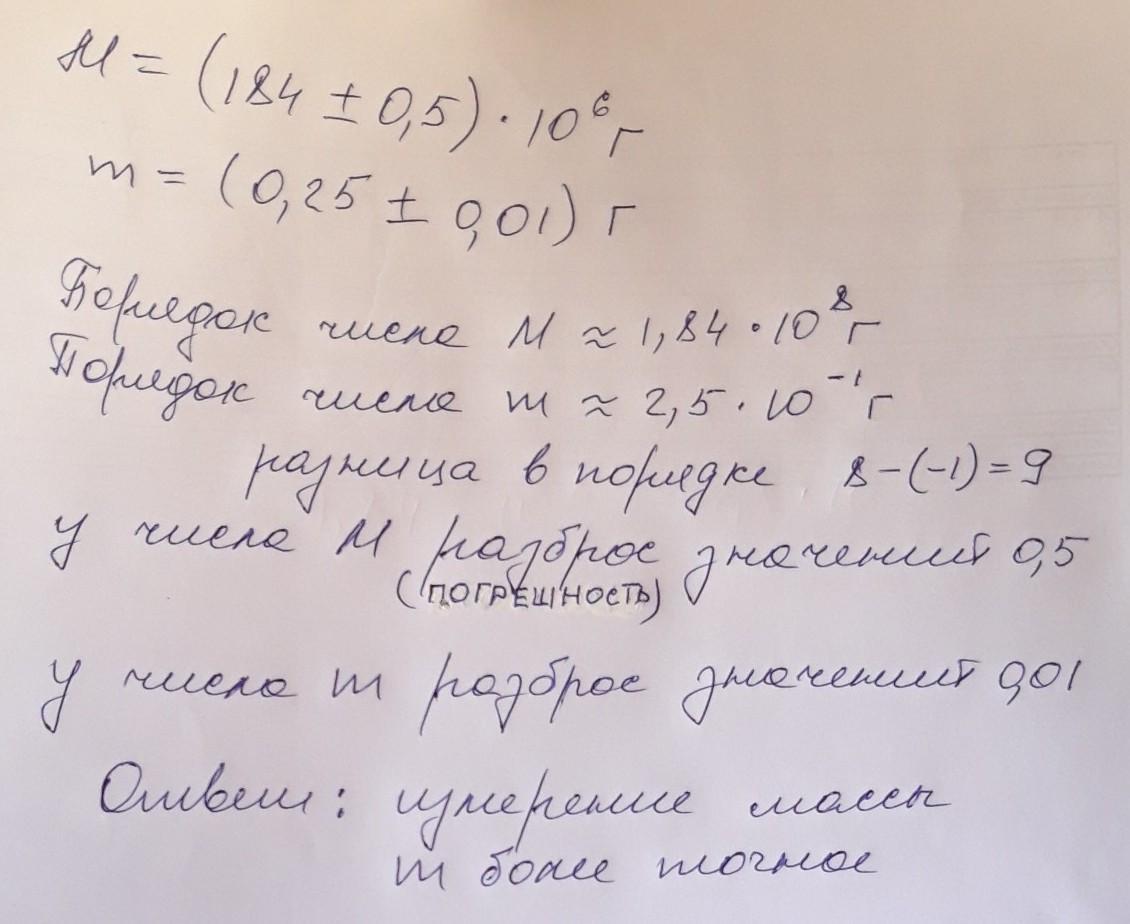 М = (184 ± 0,5) · 10⁶ г
m = (0,25 ± 0,01) г
Порядок числа М ≈ 1,84 · 10⁸ г
Порядок числа m ≈ 2,5 · 10⁻¹ г
разница в порядке 8 - (-1) = 9
У числа М разброс значений 0,5
(ПОГРЕШНОСТЬ)
У числа m разброс значений 0,01
Ответ: измерение массы
m более точное